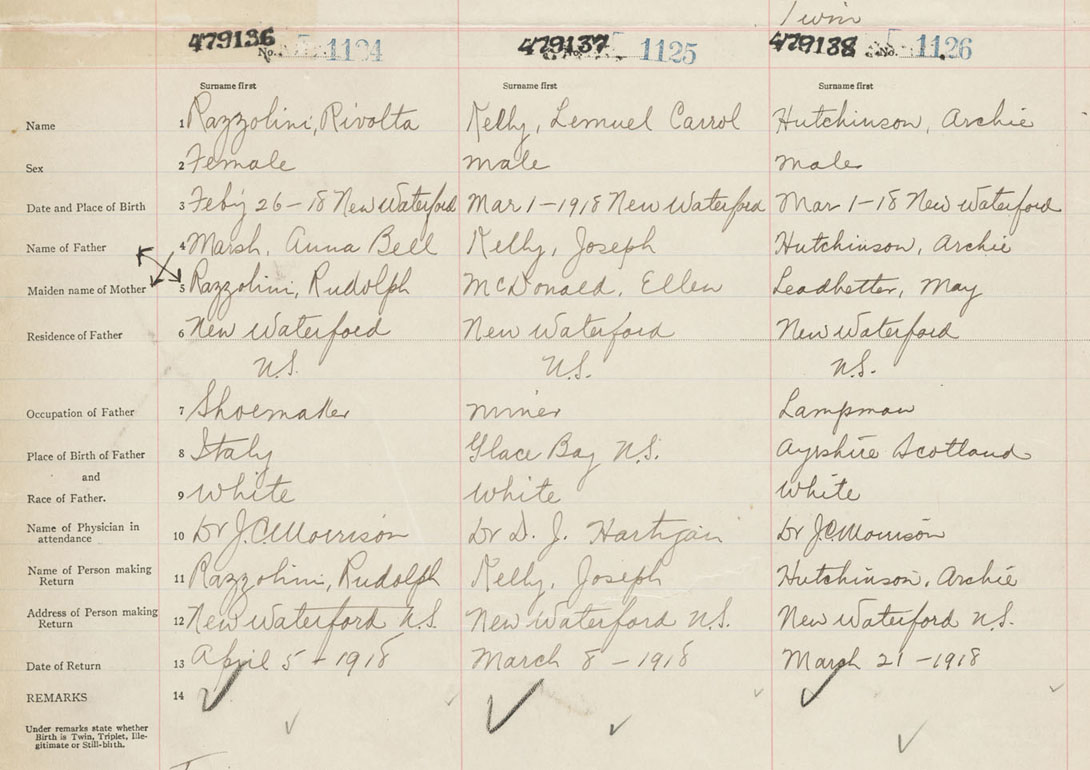 Twin
479136 No. 1124 479137 No. 1125 479138 No. 1126
Surname first Surname first Surname first
Name 1 Razzolini, Rivolta Kelly, Lemuel Carrol Hutchinson, Archie
Sex 2 Female male male
Date and Place of Birth 3 Feb'y 26-18 New Waterford Mar 1-1918 New Waterford Mar 1-18 New Waterford
Name of Father 4 Marsh, Anna Bell Kelly, Joseph Hutchinson, Archie
Maiden name of Mother 5 Razzolini, Rudolph McDonald, Ellen Leadbetter, May
Residence of Father 6 New Waterford New Waterford New Waterford
N.S. N.S. N.S.
Occupation of Father 7 Shoemaker miner Lampman
Place of Birth of Father 8 Italy Glace Bay N.S. Ayrshire Scotland
and
Race of Father. 9 White White White
Name of Physician in
attendance 10 Dr J.C. Morrison Dr D. J. Hartigan Dr J.C. Morrison
Name of Person making
Return 11 Razzolini, Rudolph Kelly, Joseph Hutchinson, Archie
Address of Person making
Return 12 New Waterford N.S. New Waterford N.S. New Waterford N.S.
Date of Return 13 April 5-1918 March 8-1918 March 21-1918
REMARKS 14
Under remarks state whether
Birth is Twin, Triplet, Ille-
gitimate or Still-birth.